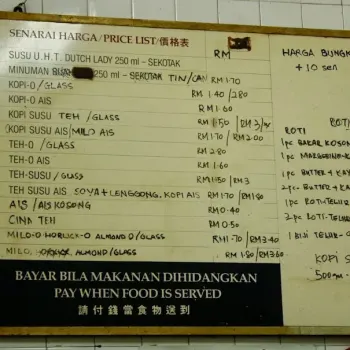 SENARAI HARGA/PRICE LIST/價格表
SUSU U.H.T. DUTCH LADY 250 ml – SEKOTAK RM
MINUMAN 250 ml – SEKOTAK TIN/CAN RM 1·70
KOPI-O /GLASS RM 1.40 /280
KOPI-O AIS RM 1.60
KOPI SUSU TEH /GLASS RM 1·50 / RM 3/=
KOPI SUSU AIS/MILO AIS RM 1·70 / RM 2.00
TEH-O /GLASS RM 2.80
TEH-O AIS RM 1.60
TEH-SUSU /GLASS RM 1·50 / RM 3
TEH SUSU AIS SOYA + LENGGONG. KOPI AIS RM 1·70 / RM 1·80
AIS /AIS KOSONG RM 0·40
CINA TEH RM 0·50
MILO-O HORLICK-O ALMOND O/GLASS RM 1·70 / RM 3·40
MILO, ALMOND/GLASS RM 1·80 / RM 3·60
BAYAR BILA MAKANAN DIHIDANGKAN
PAY WHEN FOOD IS SERVED
請付錢當食物送到
HARGA BUNGK
+ 10 sen
ROTI
1 pc BAKAR KOSON
1 pc MARGERINE-K
1 pc BUTTER + KAY
2 pc BUTTER + KA
1 pc ROTI-TELUR
2 pc ROTI-TELU
1 BIJI TELUR-
KOPI S
500gm